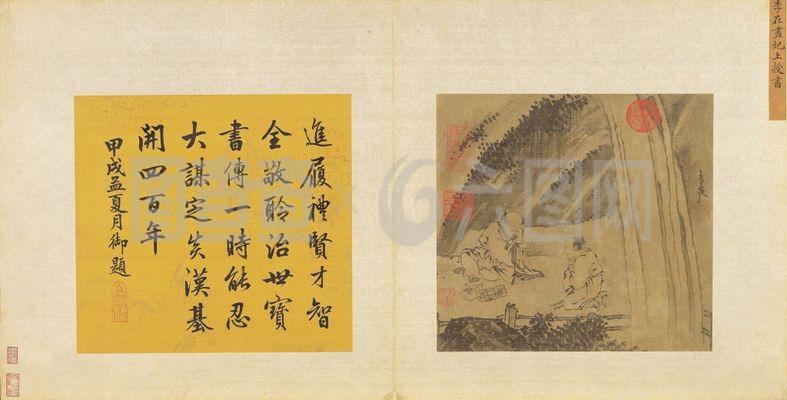 李在畫圯上授書
進履禮賢才智
全敬聆治世寶
書傳一時能忍
大謀定矣漢基
開四百年
甲戌孟夏月御題
六图网